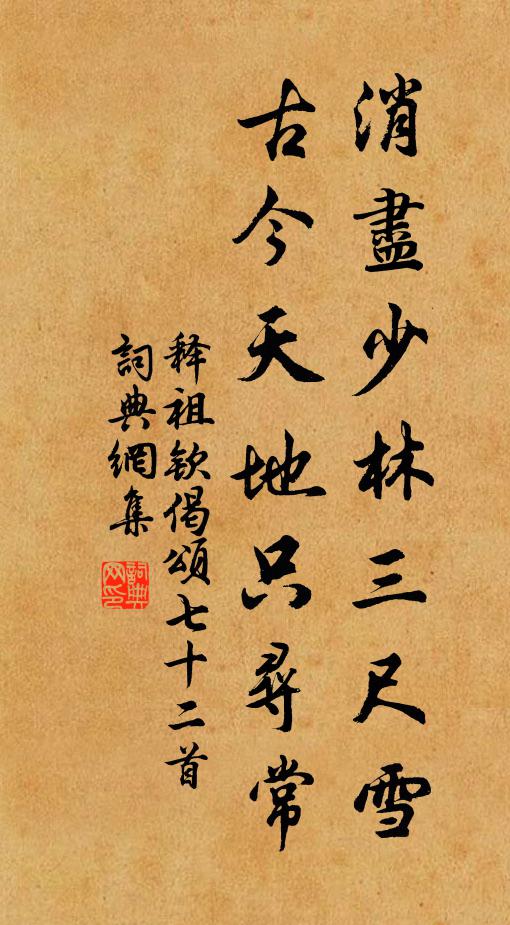 消盡少林三尺雪
古今天地只尋常
释祖欽偈頌七十二首
詞典網集
詞典網印